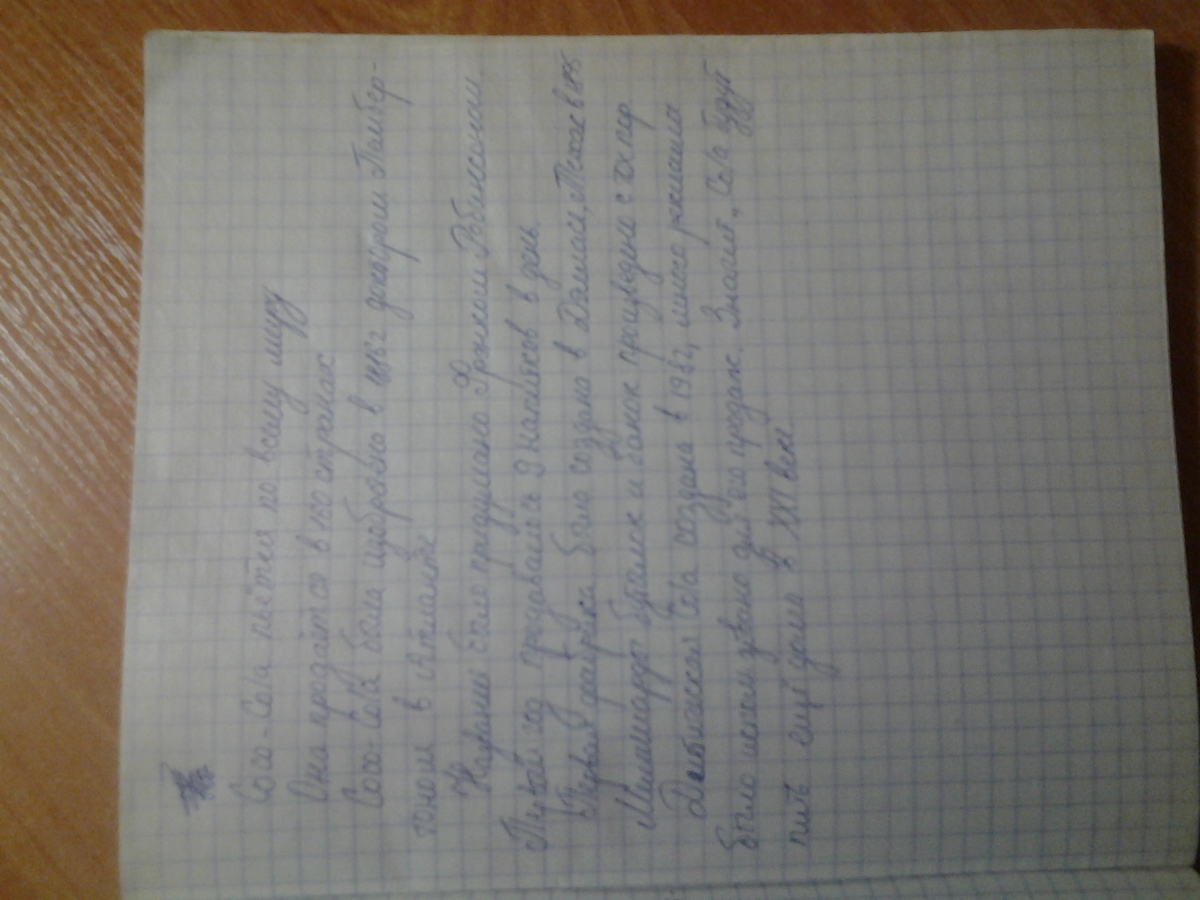 Coca-Cola пьётся по всему миру
Она продаётся в 160 странах
Coca-Cola была изобретена в 1886г доктором Пембер-
тоном в Атланте
Название было придумано Фрэнком Робинсоном
Первый год продавалось 9 напитков в день.
Первая фабрика была создана в Далласе, Техас в 1895
Миллиарды бутылок и банок произведено с тех пор
Диетическая Cola создана в 1982, много рекламы
было использовано для его продаж. Знаем, Cola будут
пить ещё долго в XXI веке